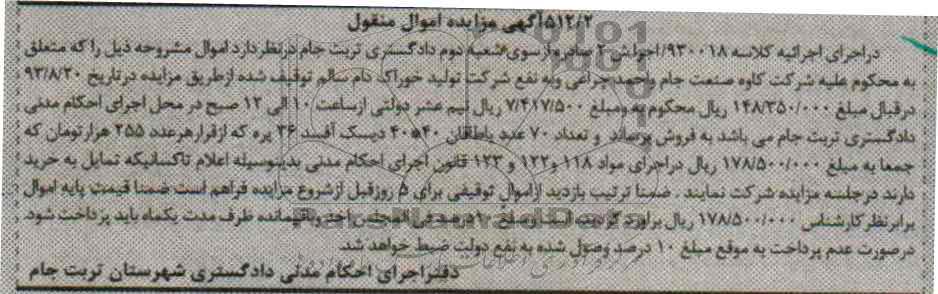 ۵۱۲/۲ آگهی مزایده اموال منقول
دراجرای اجرائیه کلاسه ۹۳۰۰۱۸/اجراش ۲ صادره ازسوی شعبه دوم دادگستری تربت جام درنظردارد اموال مشروحه ذیل را که متعلق
به محکوم علیه شرکت کاوه صنعت جام واحمد چراغی وبه نفع شرکت تولید خوراک دام سالم توقیف شده ازطریق مزایده درتاریخ ۹۳/۸/۲۰
درقبال مبلغ ۱۴۸/۳۵۰/۰۰۰ ریال محکوم به ومبلغ ۷/۴۱۷/۵۰۰ ریال نیم عشر دولتی ازساعت ۱۰ الی ۱۲ صبح در محل اجرای احکام مدنی
دادگستری تربت جام می باشد به فروش برساند و تعداد ۷۰ عدد یاطاقان ۴۰*۴۰ دیسک آفست ۳۶ پره که ازقرارهرعدد ۲۵۵ هزارتومان که
جمعا به مبلغ ۱۷۸/۵۰۰/۰۰۰ ریال دراجرای مواد ۱۱۸ و۱۲۲ و ۱۲۳ قانون اجرای احکام مدنی بدینوسیله اعلام تاکسانیکه تمایل به خرید
دارند درجلسه مزایده شرکت نمایند . ضمنا ترتیب بازدید ازاموال توقیفی برای ۵ روزقبل ازشروع مزایده فراهم است ضمنا قیمت پایه اموال
برابرنظرکارشناس ۱۷۸/۵۰۰/۰۰۰ ریال براورد گردیده است ومبلغ ۱۰درصد فی المجلس اخذ وباقیمانده ظرف مدت یکماه باید پرداخت شود.
درصورت عدم پرداخت به موقع مبلغ ۱۰ درصد وصول شده به نفع دولت ضبط خواهد شد.
دفتراجرای احکام مدنی دادگستری شهرستان تربت جام